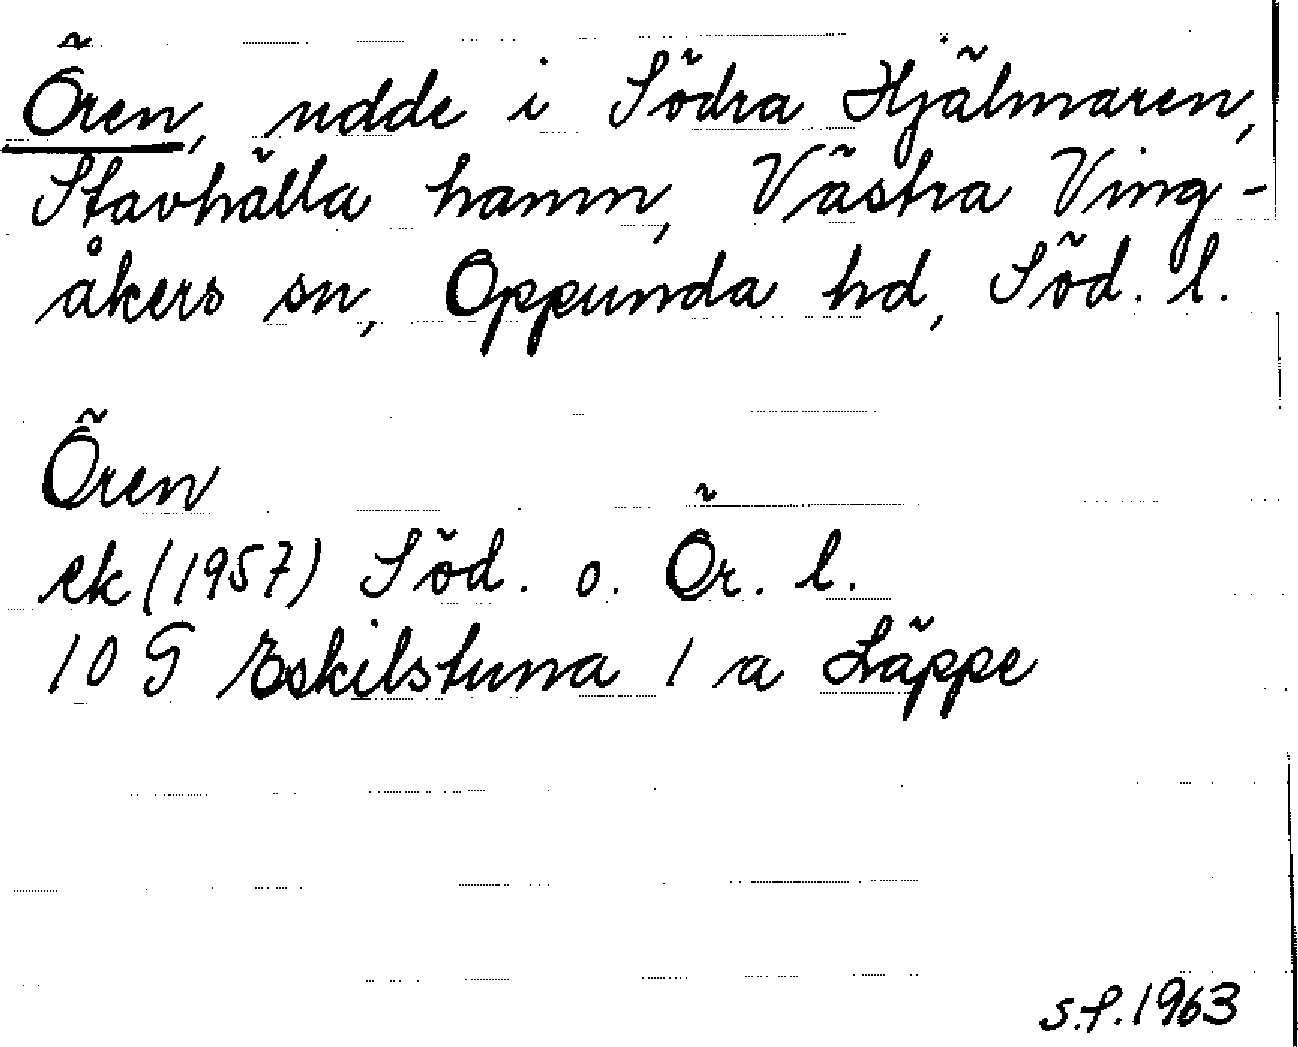 Ören, udde i Södra Hjälmaren,
Stavhälla hamn, Västra Ving-
åkers sn, Oppunda hd, Söd. l.
Ören
ek (1957) Söd. o. Ör. l.
10 G Eskilstuna 1 a Läppe
S.f. 1963